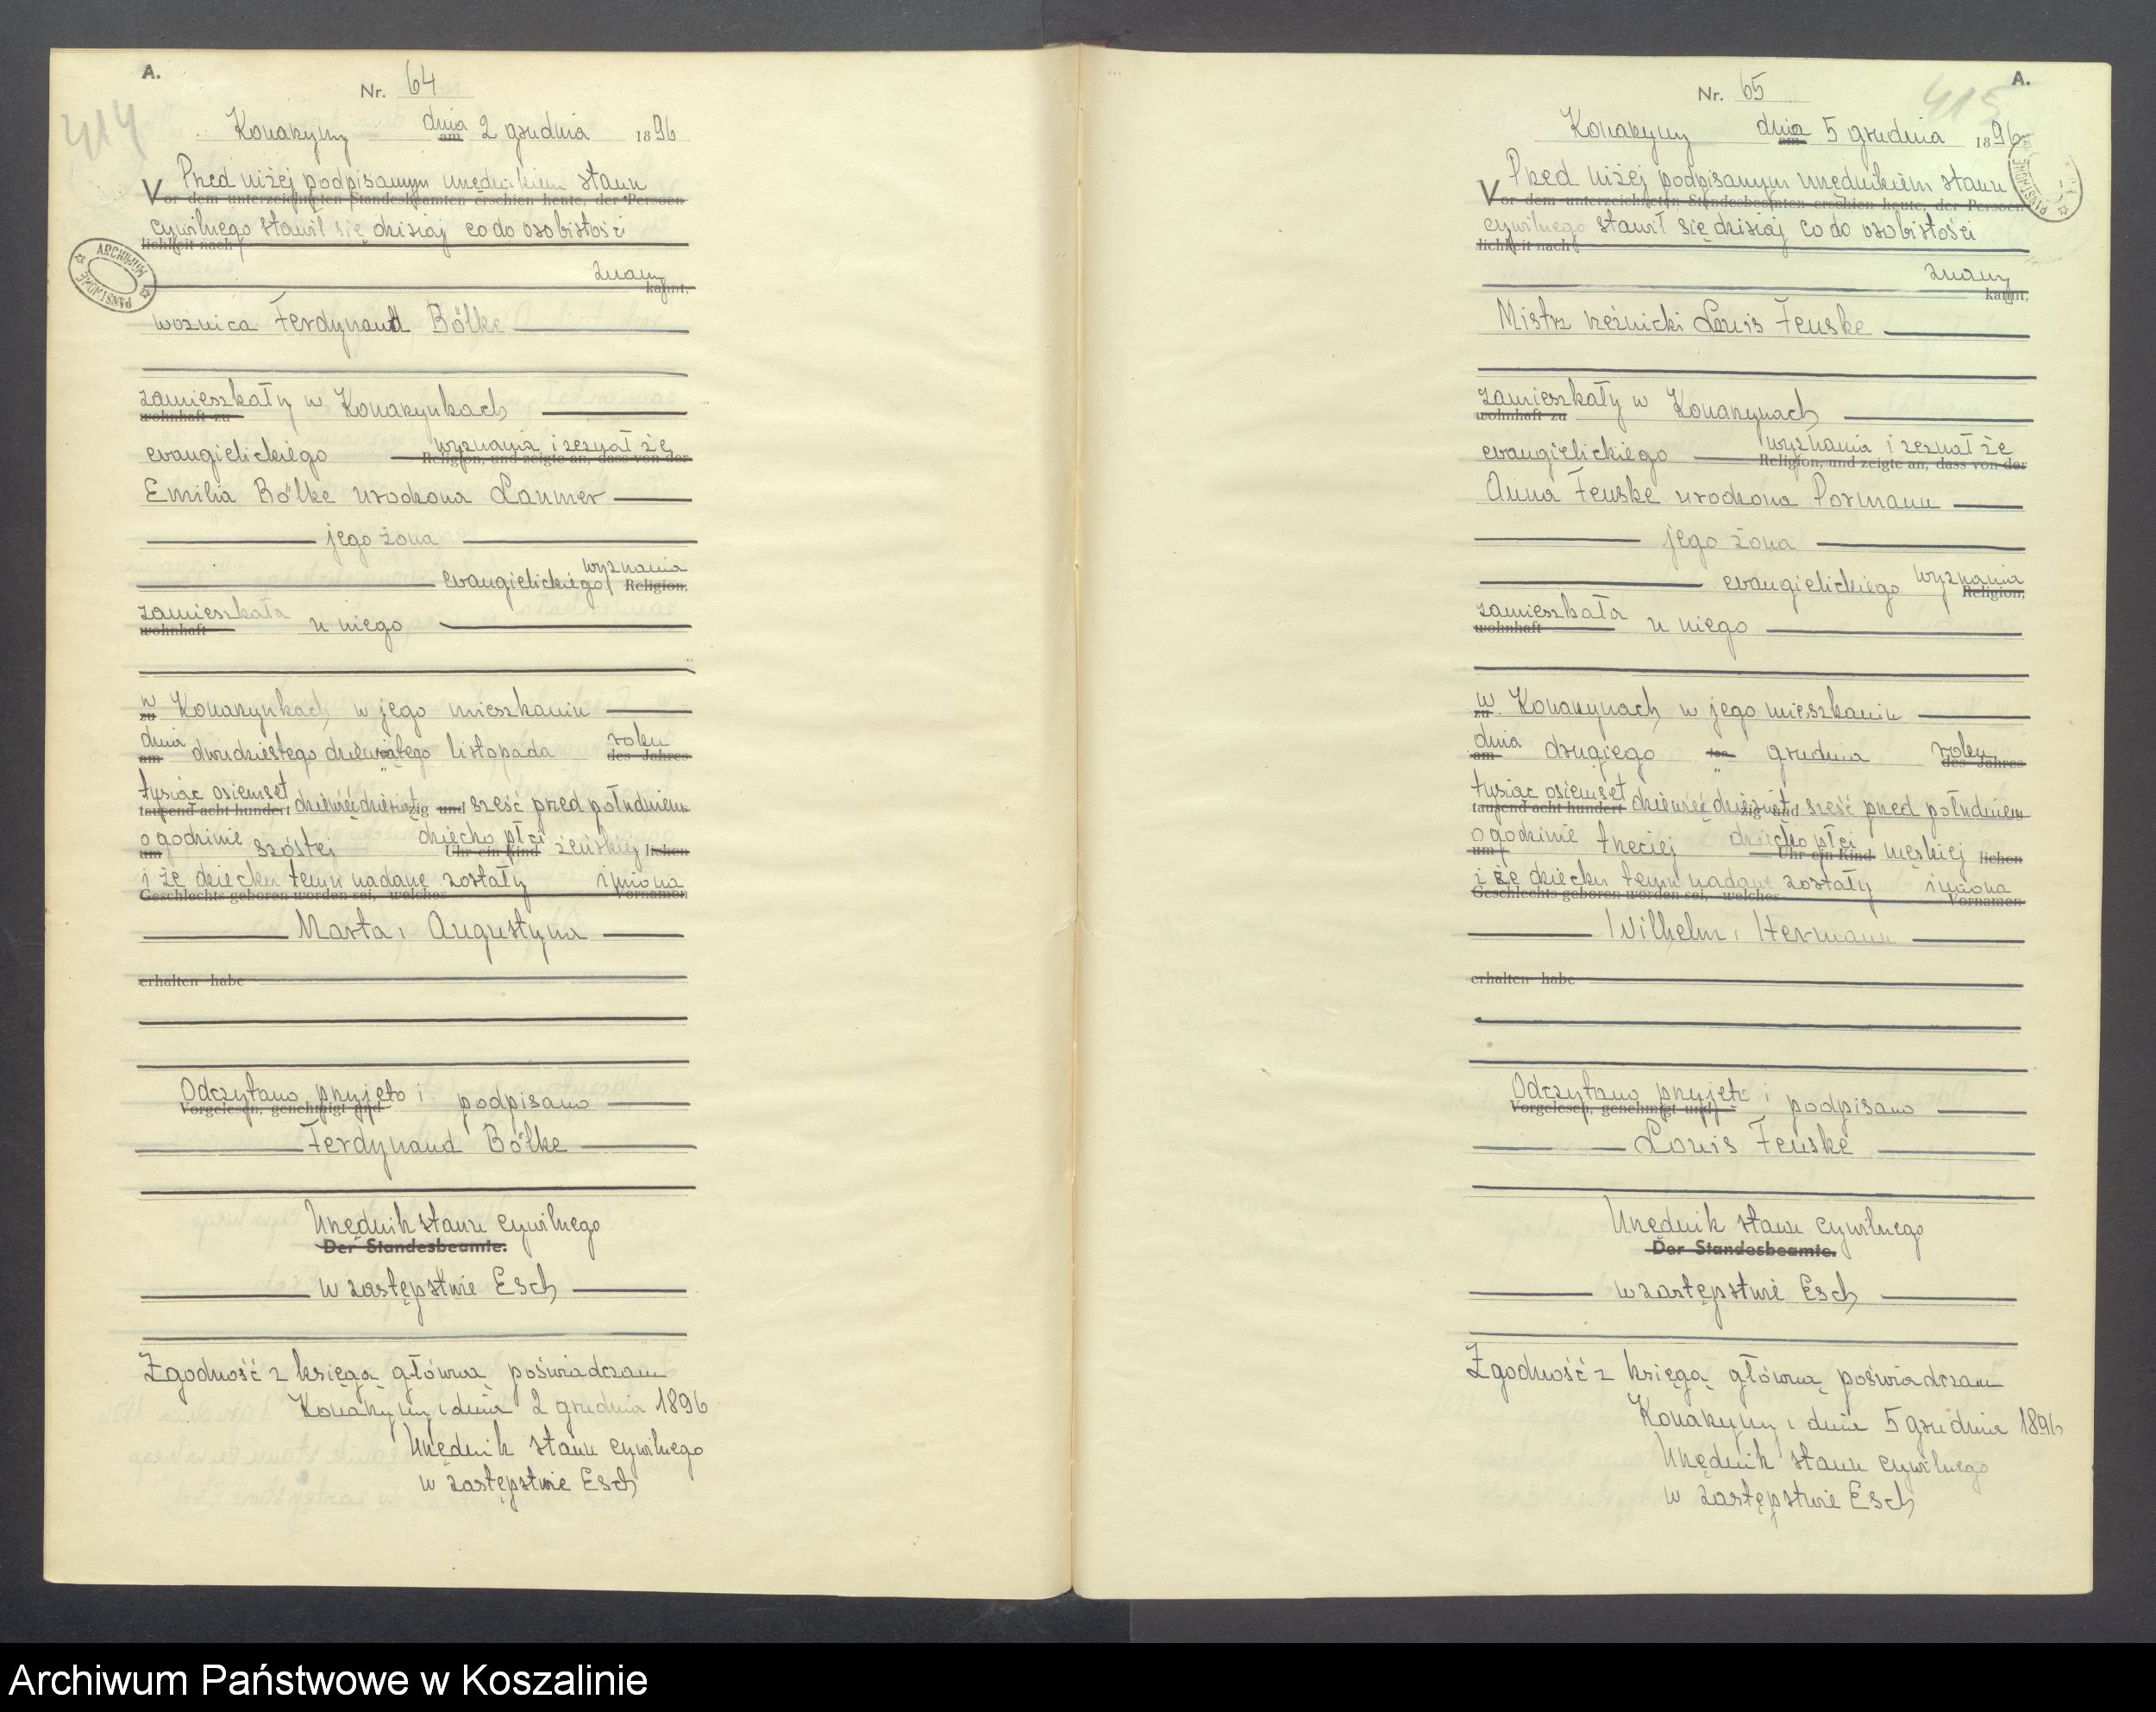 A.
414
Nr. 64
Konarzyny dnia am 2 grudnia 1896
Przed niżej podpisanym urzędnikiem stanu
Vor dem unterzeichneten Standesbeamten erschien heute, der Persoen-
cywilnego stawił się dzisiaj co do osobistości
lichkeit nach
znany
kannt,
ARCHIWUM PAŃSTWOWE
woźnica Ferdynand Bölke
zamieszkały w Konarzynkach
wohnhaft zu
wyznania i zeznał że
evangielickiego Religion, und zeigte an, dass von der
Emilia Bölke urodzona Laumer
jego żona
wyznania
evangielickiego Religion,
zamieszkała
wohnhaft u niego
w
zu Konarzynkach w jego mieszkaniu
dnia roku
am dwudziestego dziewiątego listopada des Jahres
tysiąc osiemset
tausend acht hundert dziewięćdziesiąt zig und sześć przed południem
o godzinie dziecko płci
um szóstej Uhr ein Kind żeńskiej lichen
i że dziecku temu nadane zostały imiona
Geschlechts geboren worden sei, welches Vornamen
Marta, Augustyna
erhalten habe
Odczytano przyjęto i podpisano
Vorgelesen, genehmigt und
Ferdynand Bölke
Urzędnik stanu cywilnego
Der Standesbeamte.
w zastępstwie Esch
Zgodność z księgą główną poświadczam
Konarzyny, dnia 2 grudnia 1896
Urzędnik stanu cywilnego
w zastępstwie Esch
A.
415
Nr. 65
Konarzyny dnia am 5 grudnia 1896
Przed niżej podpisanym urzędnikiem stanu
Vor dem unterzeichneten Standesbeamten erschien heute, der Persoen-
cywilnego stawił się dzisiaj co do osobistości
lichkeit nach
znany
kannt,
Mistrz rzeźnicki Louis Fenske
zamieszkały w Konarzynach
wohnhaft zu
wyznania i zeznał że
evangielickiego Religion, und zeigte an, dass von der
Anna Fenske urodzona Pormann
jego żona
evangielickiego wyznania
Religion,
zamieszkała
wohnhaft u niego
w
zu Konarzynach w jego mieszkaniu
dnia roku
am drugiego ten grudnia des Jahres
tysiąc osiemset
tausend acht hundert dziewięćdziesiąt zig und sześć przed południem
o godzinie dziecko płci
um trzeciej Uhr ein Kind męskiej lichen
i że dziecku temu nadane zostały imiona
Geschlechts geboren worden sei, welches Vornamen
Wilhelm, Hermann
erhalten habe
Odczytano przyjęto i podpisano
Vorgelesen, genehmigt und
Louis Fenske
Urzędnik stanu cywilnego
Der Standesbeamte.
w zastępstwie Esch
Zgodność z księgą główną poświadczam
Konarzyny, dnia 5 grudnia 1896
Urzędnik stanu cywilnego
w zastępstwie Esch
Archiwum Państwowe w Koszalinie